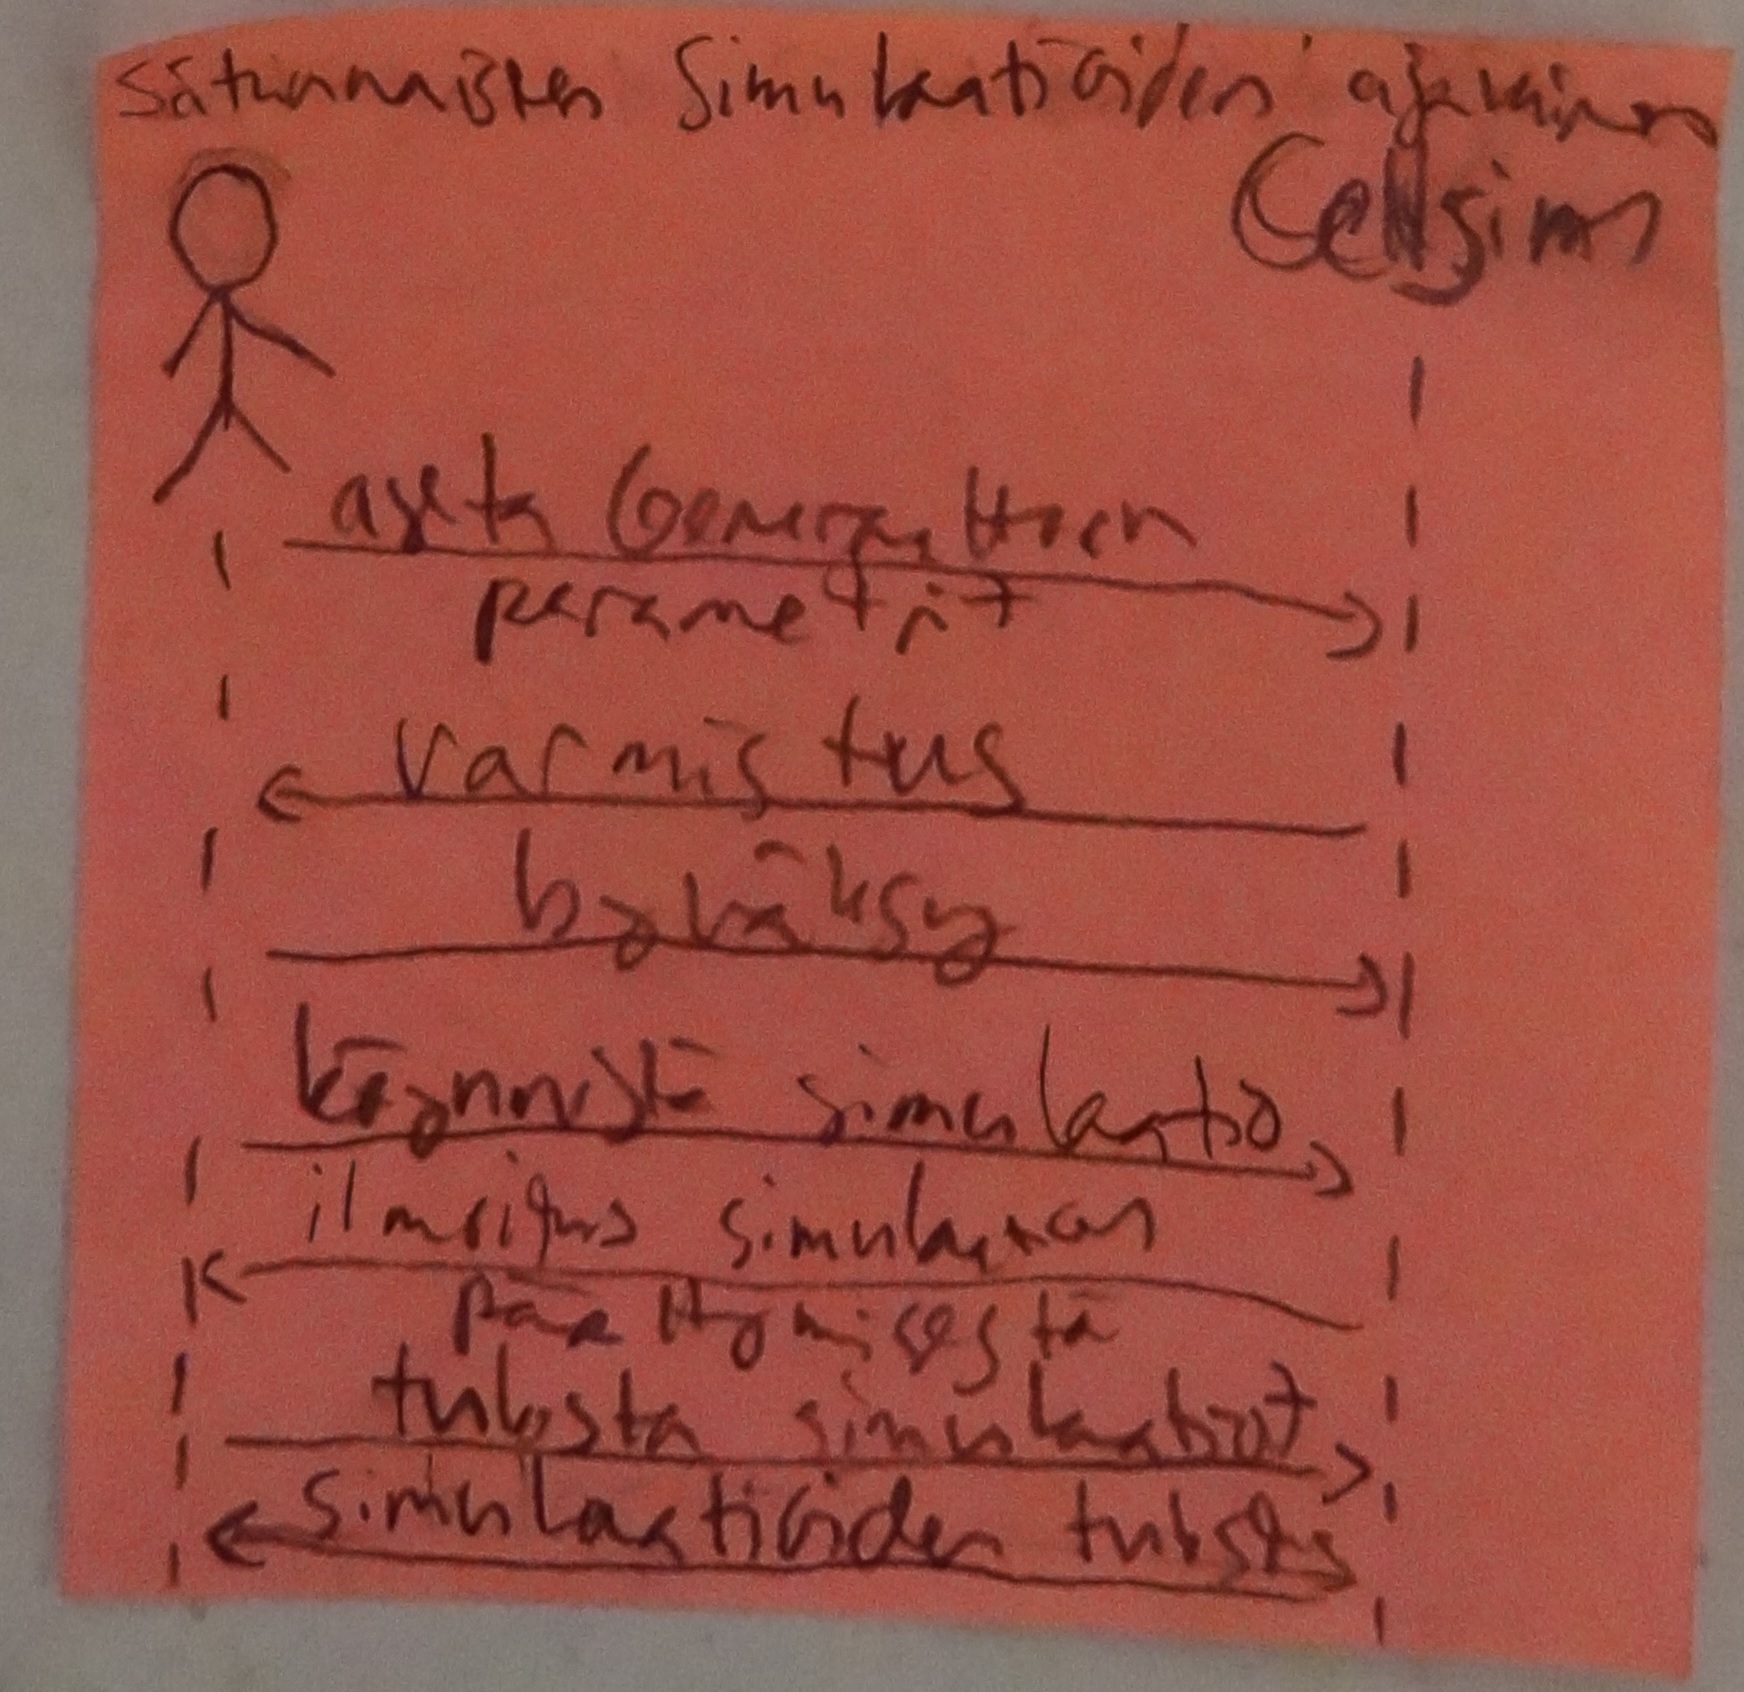 Satunnaisten Simulaatioiden ajaminen
Cellsim
aseta Generaattorin
parametrit
varmistus
hyväksy
käynnistä simulaatio
ilmoitus simulaation
päättymisestä
tulosta simulaatiot
simulaatioiden tulostus